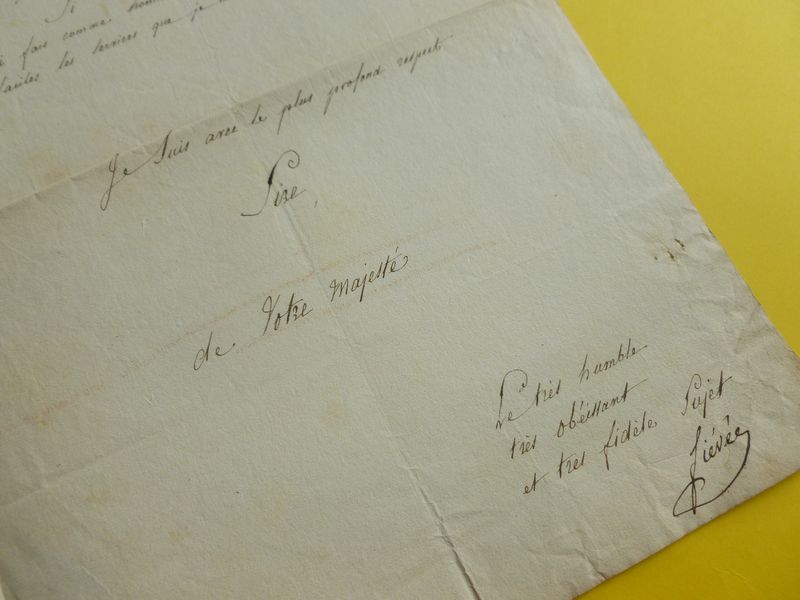 Si
fais comme homm
fautes les services que je
Je suis avec le plus profond respect
Sire,
de Votre Majesté
Le très humble
très obéissant
et très fidèle Sujet
fiévée